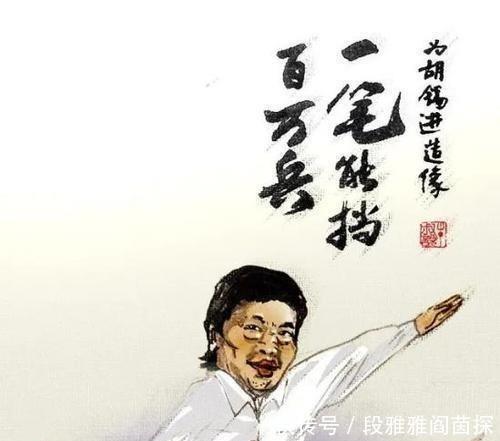 为胡锡进造像
一笔能挡
百万兵
快传号/段雅雅阎茵探